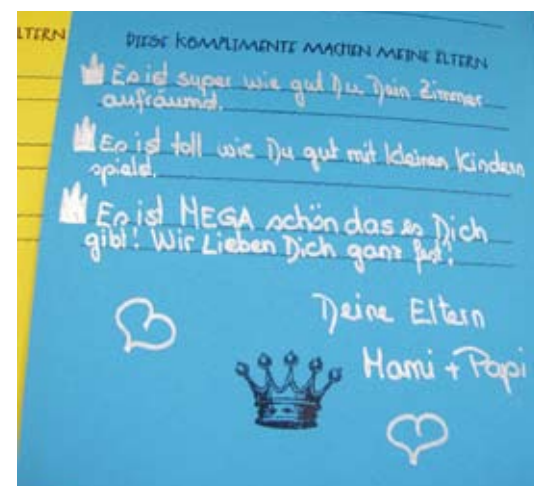 ELTERN
DIESE KOMPLIMENTE MACHEN MEINE ELTERN
Es ist super wie gut Du Dein Zimmer
aufräumst.
Es ist toll wie Du gut mit kleinen Kindern
spielst.
Es ist MEGA schön das es Dich
gibt! Wir Lieben Dich ganz fest!
Deine Eltern
Mami + Papi